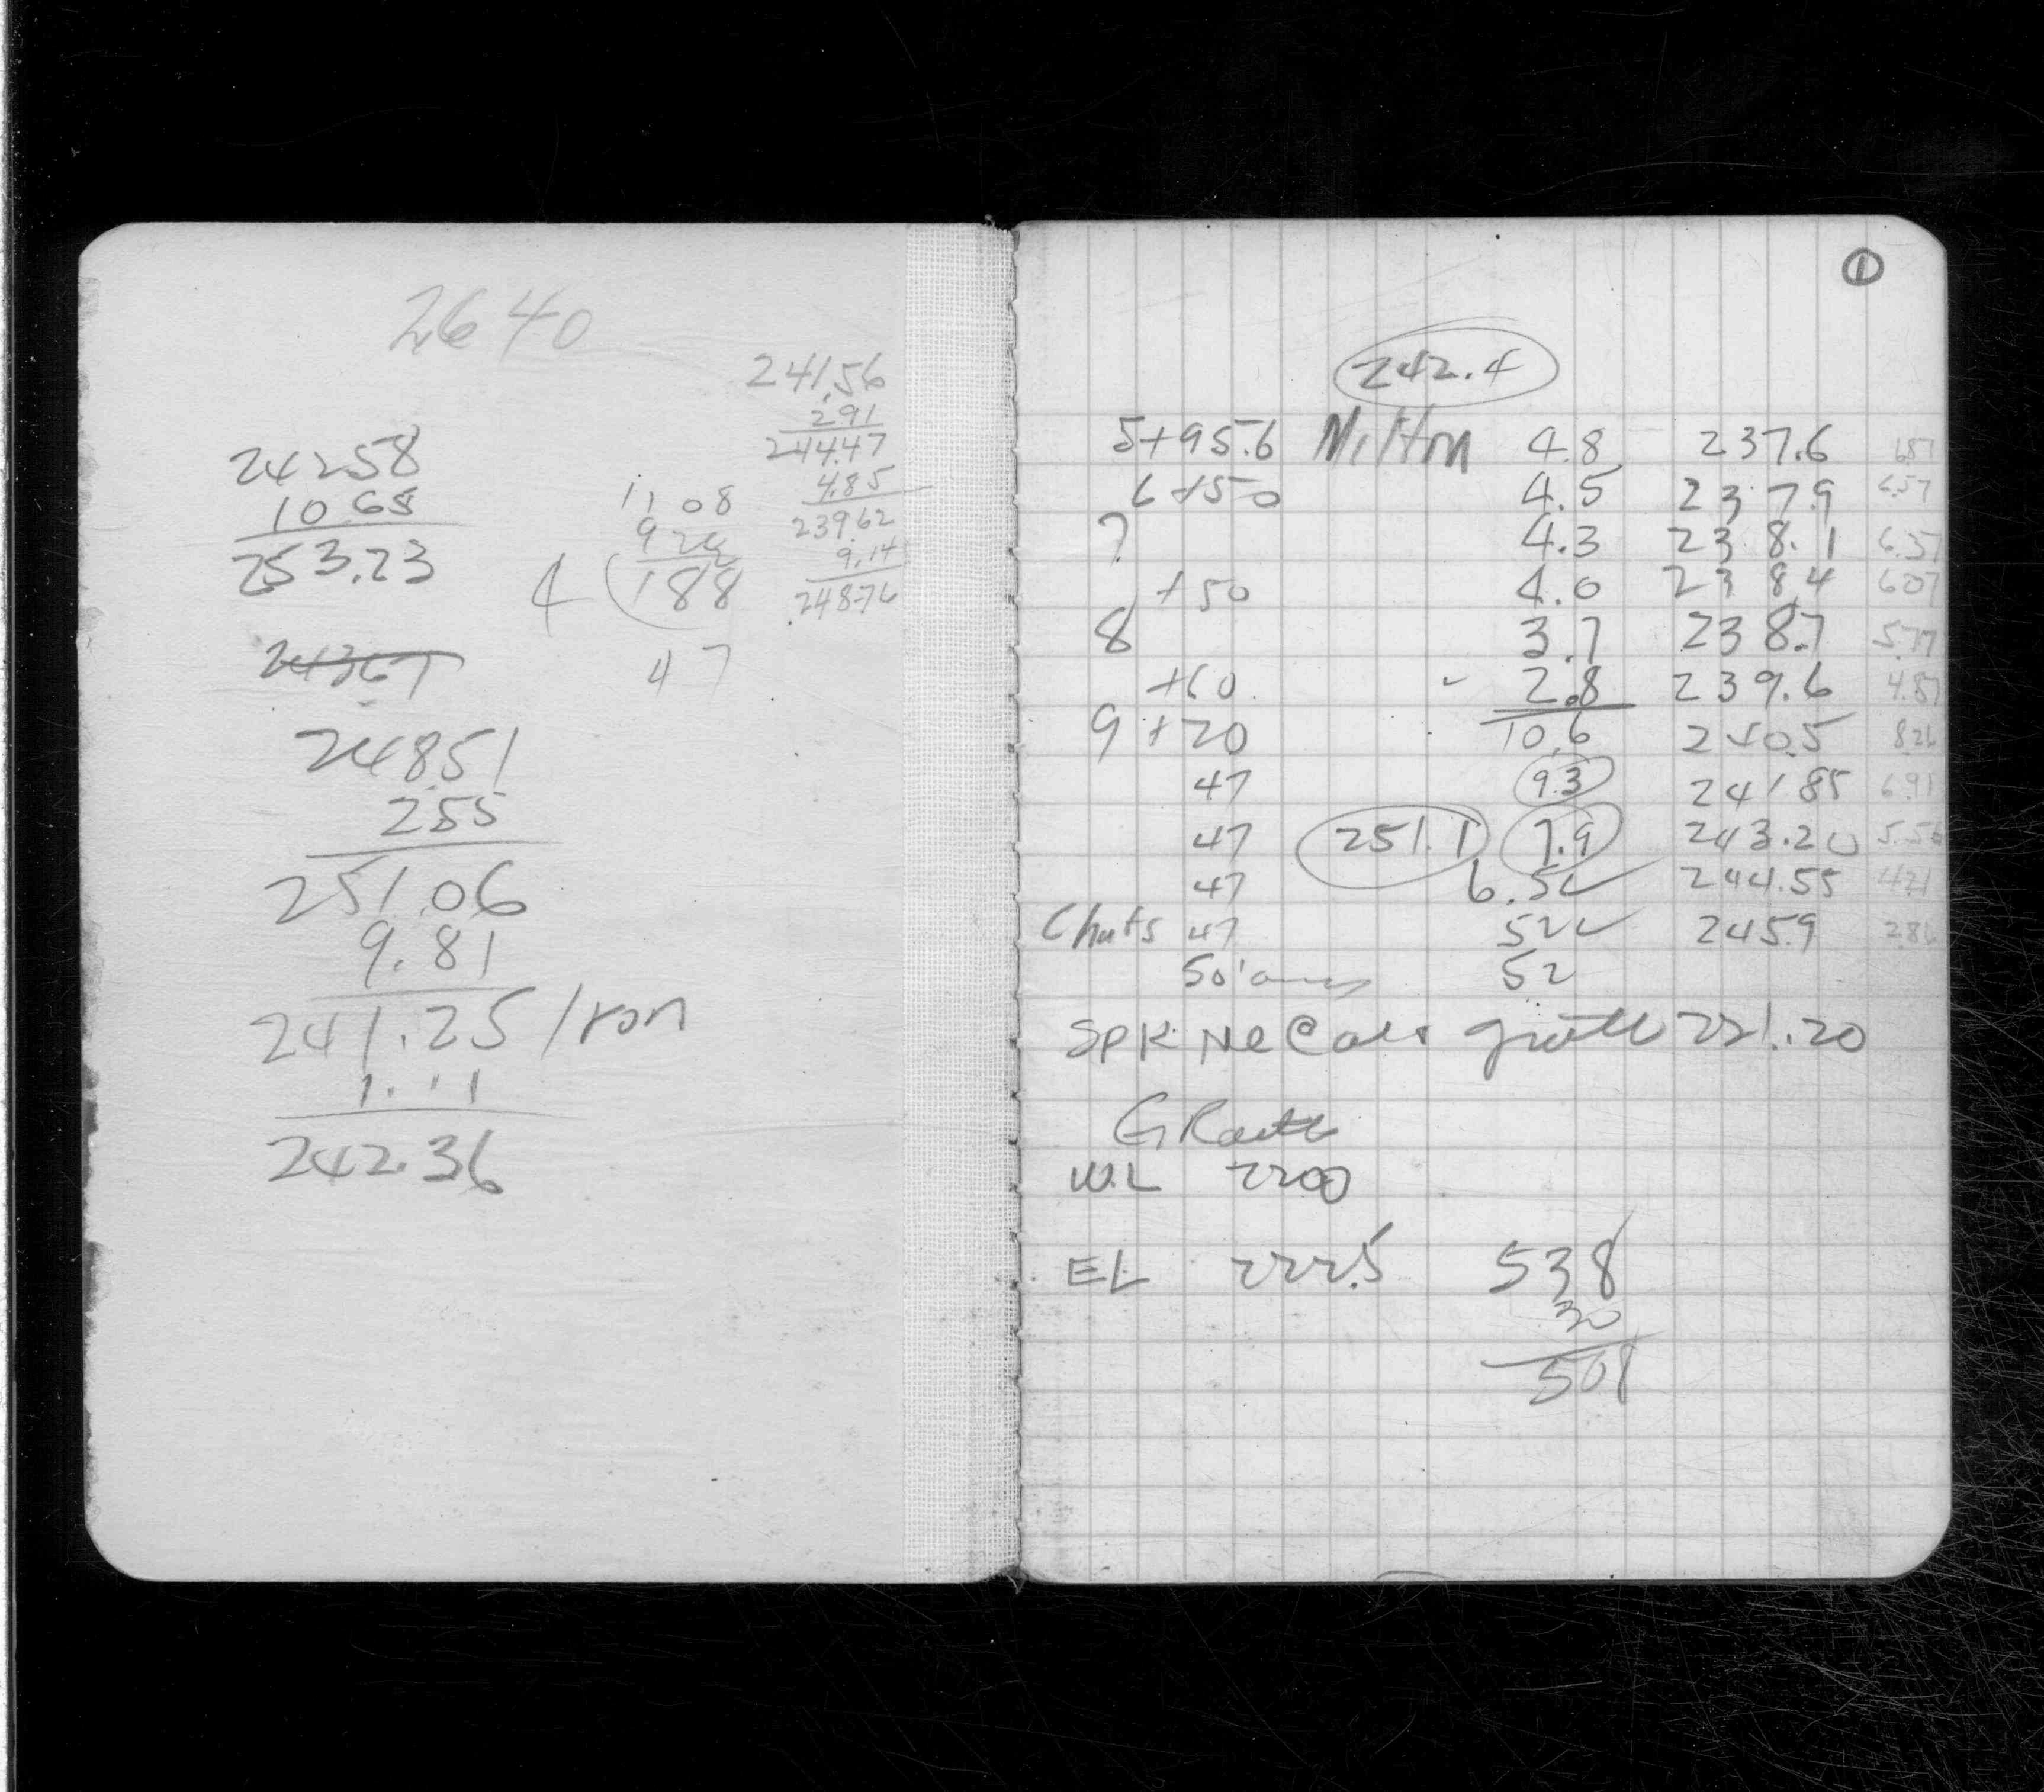 2640
241.56
2.91
244.47
4.85
239.62
9.14
248.76
242 58
10 65
253.23
11 08
9 20
4 188
47
24367
248.51
2 55
251.06
9.81
241.25 / ron
1.11
242.36
①
242.4
5+95.6 Milton 4.8 237.6 6.57
6+50 4.5 237.9 6.57
7 4.3 238.1 6.37
+50 4.0 238.4 6.07
8 3.7 238.7 5.77
+60 2.8 239.6 4.87
9+20 10.6 240.5 8.26
47 9.3 241 85 6.91
47 251.1 7.9 243.20 5.56
47 6.5 244.55 4.21
Chuts 47 52 245.9 2.86
50' 52
SPK NE Cor 221.20
W.L 2200
EL 222.5 538
30
508